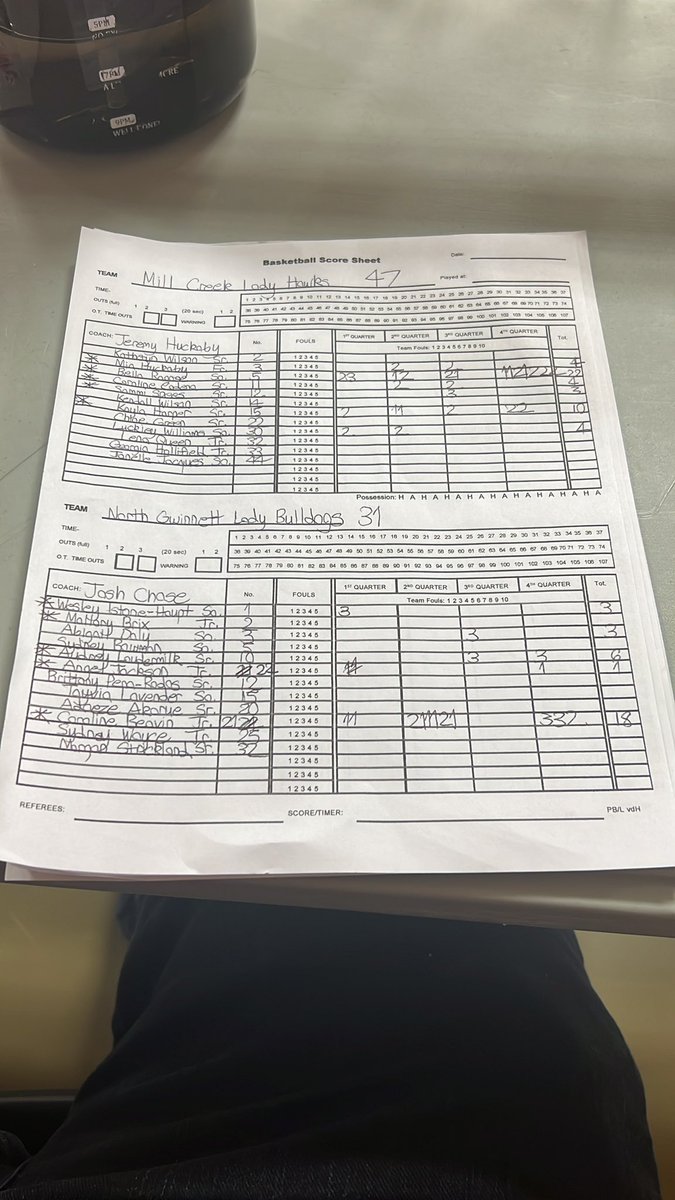 5PM
7PM
9PM
WELL DONE
Basketball Score Sheet
Date:
TEAM Mill Creek Lady Hawks 47 Played at:
TIME-
OUTS (full) 1 2 3 (20 sec) 1 2
O.T. TIME OUTS WARNING
1 2 3 4 5 6 7 8 9 10 11 12 13 14 15 16 17 18 19 20 21 22 23 24 25 26 27 28 29 30 31 32 33 34 35 36 37
38 39 40 41 42 43 44 45 46 47 48 49 50 51 52 53 54 55 56 57 58 59 60 61 62 63 64 65 66 67 68 69 70 71 72 73 74
75 76 77 78 79 80 81 82 83 84 85 86 87 88 89 90 91 92 93 94 95 96 97 98 99 100 101 102 103 104 105 106 107
COACH: Jeremy Huckaby No. FOULS 1ST QUARTER 2ND QUARTER 3RD QUARTER 4TH QUARTER Tot.
Team Fouls: 1 2 3 4 5 6 7 8 9 10
Wilson Sr. 2 1 2 3 4 5
Mia Huckaby Fr. 3 1 2 3 4 5 2 2 4
Bella So. 5 1 2 3 4 5 23 12 21 22
Caroline Sr. 11 1 2 3 4 5 2 2 4
Sammi Sr. 12 1 2 3 4 5 3 3
Kendall Wilson Sr. 14 1 2 3 4 5
Kayla Harner Sr. 15 1 2 3 4 5 2 11 2 22 10
Chloe Green Sr. 22 1 2 3 4 5
Williams So. 30 1 2 3 4 5 2 2 4
Lena Queen Jr. 32 1 2 3 4 5
Georgia Hollifield Jr. 33 1 2 3 4 5
Janelle Jacques So. 44 1 2 3 4 5
1 2 3 4 5
1 2 3 4 5
Possession: H A H A H A H A H A H A H A H A H A H A
TEAM North Gwinnett Lady Bulldogs 31
TIME-
OUTS (full) 1 2 3 (20 sec) 1 2
O.T. TIME OUTS WARNING
1 2 3 4 5 6 7 8 9 10 11 12 13 14 15 16 17 18 19 20 21 22 23 24 25 26 27 28 29 30 31 32 33 34 35 36 37
38 39 40 41 42 43 44 45 46 47 48 49 50 51 52 53 54 55 56 57 58 59 60 61 62 63 64 65 66 67 68 69 70 71 72 73 74
75 76 77 78 79 80 81 82 83 84 85 86 87 88 89 90 91 92 93 94 95 96 97 98 99 100 101 102 103 104 105 106 107
COACH: Josh Chase No. FOULS 1ST QUARTER 2ND QUARTER 3RD QUARTER 4TH QUARTER Tot.
Team Fouls: 1 2 3 4 5 6 7 8 9 10
Wesley So. 1 1 2 3 4 5 3 3
Mattany Brix Jr. 2 1 2 3 4 5
Abigail Daly So. 3 1 2 3 4 5 3 3
Sydney So. 5 1 2 3 4 5
Audrey Loudermilk Sr. 10 1 2 3 4 5 3 3 6
Jackson Jr. 24 1 2 3 4 5 1 1
Brittany Sr. 12 1 2 3 4 5
Lavender So. 15 1 2 3 4 5
Akarue Sr. 20 1 2 3 4 5
Caroline Beavin Jr. 21 1 2 3 4 5 11 21121 332 18
Sydney Jr. 25 1 2 3 4 5
Strickland Sr. 32 1 2 3 4 5
1 2 3 4 5
1 2 3 4 5
1 2 3 4 5
REFEREES: SCORE/TIMER: PB/L vdH